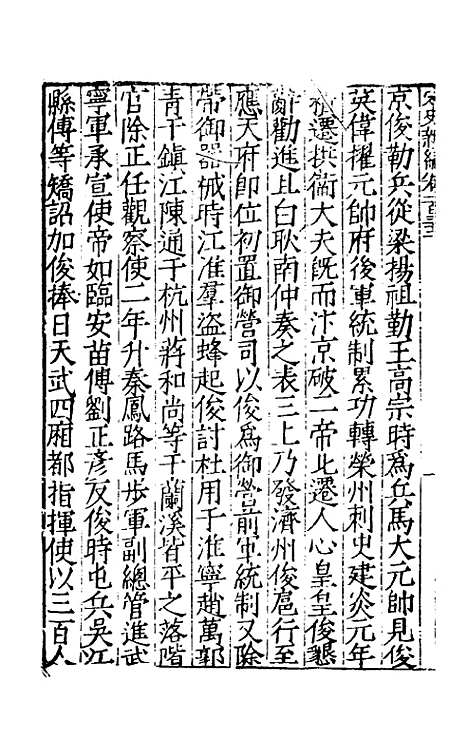 宋史新編卷一百三十二
京俊勒兵從梁揚祖勤王高宗時爲兵馬大元帥見俊
英偉擢元帥府後軍統制累功轉榮州刺史建炎元年
遷拱衞大夫旣而汴京破二帝北遷人心皇皇俊懇
辭勸進且白耿南仲奏之表三上乃發濟州俊扈行至
應天府卽位初置御營司以俊爲御營前軍統制又除
帶御器械時江淮羣盜蜂起俊討杜用于淮寧趙萬郭
青于鎮江陳通于杭州蔣和尚等于蘭溪皆平之落階
官除正任觀察使二年升秦鳳路馬步軍副總管進武
寧軍承宣使帝如臨安苗傅劉正彥反俊時屯兵吳江
縣傅等矯詔加俊捧日天武四廂都指揮使以三百人